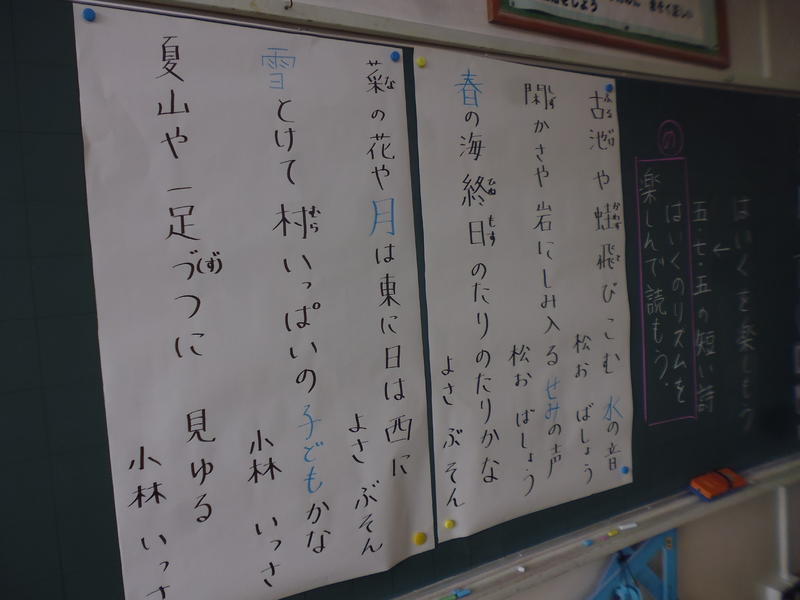 はいくを楽しもう
五・七・五の短い詩
はいくのリズムを
楽しんで読もう。
の
古池や蛙飛びこむ水の音
ふる いけ かわず と
松お ばしょう
閑かさや岩にしみ入るせみの声
しず
松お ばしょう
春の海終日のたりのたりかな
ひね もす
よさ ぶそん
菜の花や月は東に日は西に
な
よさ ぶそん
雪とけて村いっぱいの子どもかな
むら
小林 いっさ
夏山や一足づつに見ゆる
(ず)
小林 いっさ